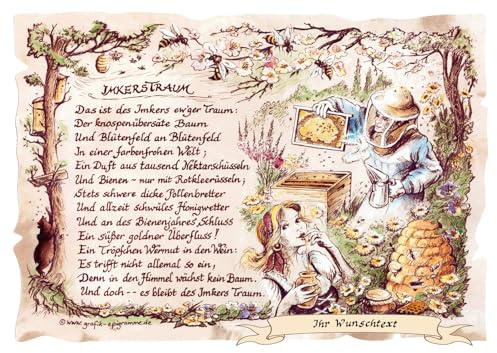 IMKERSTRAUM
Das ist des Imkers ew'ger Traum:
Der knospenübersäte Baum
Und Blütenfeld an Blütenfeld
In einer farbenfrohen Welt;
Ein Duft aus tausend Nektarschüsseln
Und Bienen - nur mit Rotkleerüsseln;
Stets schwere dicke Pollenbretter
Und allzeit schwüles Honigwetter
Und an des Bienenjahres Schluss
Ein süßer goldner Überfluss!
Ein Tröpfchen Wermut in den Wein:
Es trifft nicht allemal so ein,
Denn in den Himmel wächst kein Baum.
Und doch -- es bleibt des Imkers Traum.
©www.grafik-epigramme.de
Ihr Wunschtext